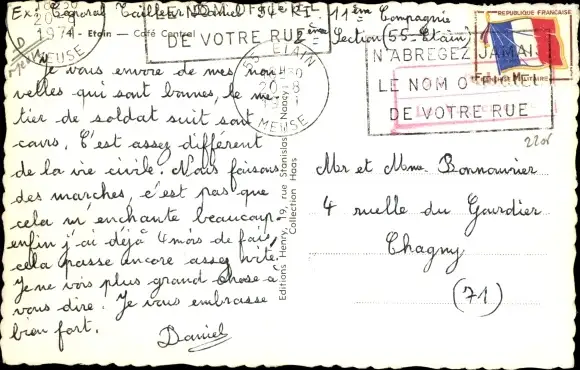 Ex: Caporal Tailleur Daniel 11ème Compagnie
2ème Section (55-Etain)
1971 - Etain — Café Central
MEUSE
DE VOTRE RUE
55 ETAIN
20-8
MEUSE
REPUBLIQUE FRANÇAISE
FRANCHISE MILITAIRE
N'ABREGEZ JAMAIS
LE NOM OFFICIEL
DE VOTRE RUE
2205
Je vous envoie de mes nou
velles qui sont bonnes, le me-
tier de soldat suit sont
cours. C'est assez différent
de la vie civile. Nous faisons
des marches, c'est pas que
cela m'enchante beaucoup
enfin j'ai déjà 4 mois de fais,
cela passe encore assez vite.
Je ne vois plus grand chose à
vous dire. Je vous embrasse
bien fort.
Daniel
Editions Henry, 19, rue Stanislas - Nancy
Collection Haas
Mr et Mme Bonnourier
4 ruelle du Gourdier
Chagny
(71)